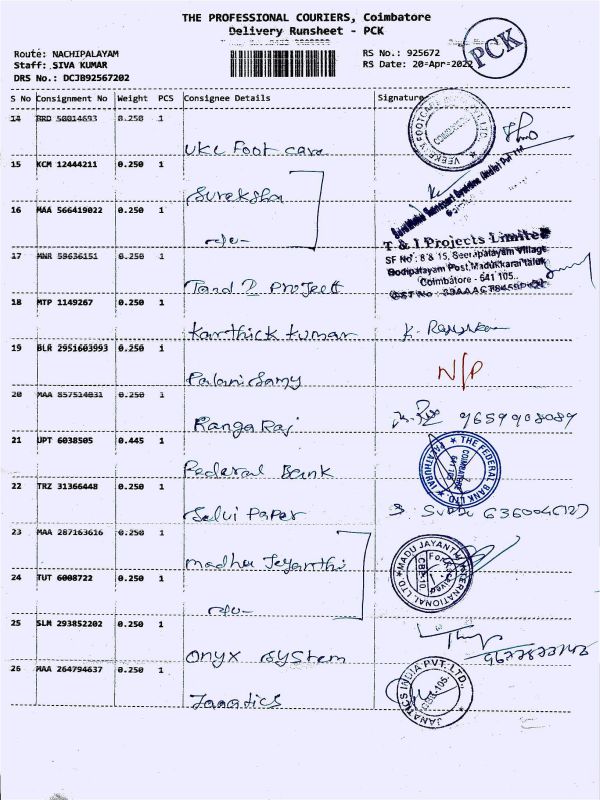 THE PROFESSIONAL COURIERS, Coimbatore
Delivery Runsheet - PCK
PCK
Route: NACHIPALAYAM
RS No.: 925672
Staff: SIVA KUMAR
RS Date: 20-Apr-2022
DRS No.: DCJB92567202
S No Consignment No Weight PCS Consignee Details Signature
14 BRD 50014693 0.250 1
UKL Foot care
15 KCM 12444211 0.250 1
Sureksha
16 MAA 566419022 0.250 1
-do-
T & I Projects Limited
SF No : 8 & 15, Seerapalayam Village
Bodipalayam Post, Madukkarai Taluk
Coimbatore - 641 105.
17 MNR 59636151 0.250 1
T and I Project
18 MTP 1149267 0.250 1
Karthick Kumar
19 BLR 2951603993 0.250 1
Palani Samy N/P
20 MAA 857514031 0.250 1
Ranga Raj 9659908089
21 UPT 6038505 0.445 1
Federal Bank
THE FEDERAL BANK LTD
22 TRZ 31366448 0.250 1
Selvi Paper
23 MAA 287163616 0.250 1
Madhu Jeyanthi
MADU JAYANTHI INTERNATIONAL LTD.
24 TUT 6008722 0.250 1
-do-
25 SLM 293852202 0.250 1
Onyx System
26 MAA 264794637 0.250 1
Janatics
JANATICS INDIA PVT. LTD.,
CBE-105.